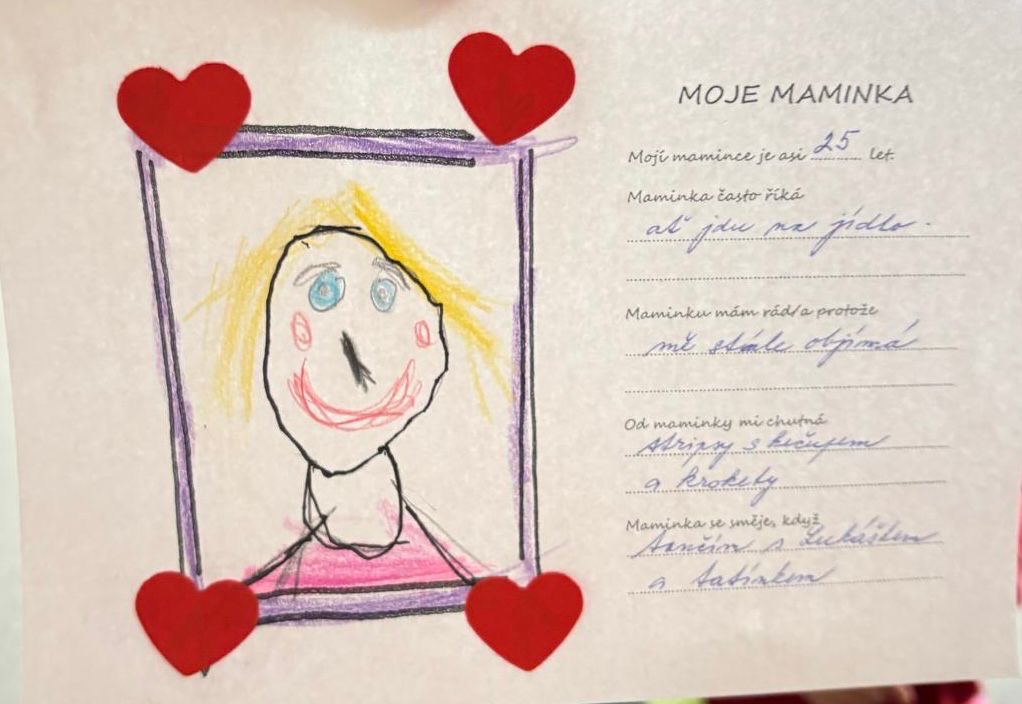 MOJE MAMINKA
Mojí mamince je asi 25 let.
Maminka často říká
ať jdu na jídlo.
Maminku mám rád/a protože
mě stále objímá
Od maminky mi chutná
stripsy s kečupem
a krokety
Maminka se směje, když
tančím s Lukášem
a tatínkem